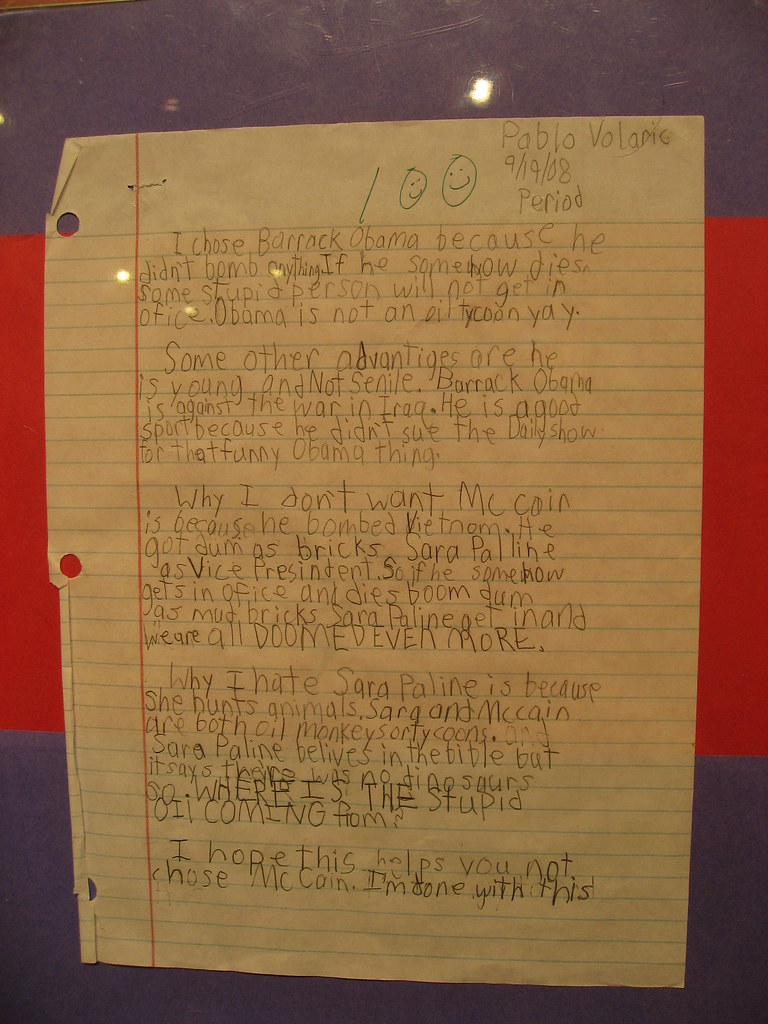 Pablo Volaric
9/19/08
Period
100
I chose Barrack Obama because he
didn't bomb anything. If he somehow dies
some stupid person will not get in
ofice. Obama is not an oil tycoon yay.
Some other advantiges are he
is young and Not Senile. Barrack Obama
is against the war in Iraq. He is a good
sport because he didn't sue the Daily show
for that funny Obama thing.
Why I don't want Mc cain
is because he bombed Vietnam. He
got dum as bricks Sara Palline
as Vice Presindent. So if he somehow
gets in ofice and dies boom dum
as mud bricks Sara Paline get in and
we are all DOOMED EVER MORE.
Why I hate Sara Paline is because
she hunts animals. Sara and Mccain
are both oil monkeys or tycoons. and
Sara Paline belives in the bible but
it says there was no dinosaurs
so. WHERE IS THE Stupid
OIL COMING from?
I hope this helps you not
chose McCain. I'm done with this